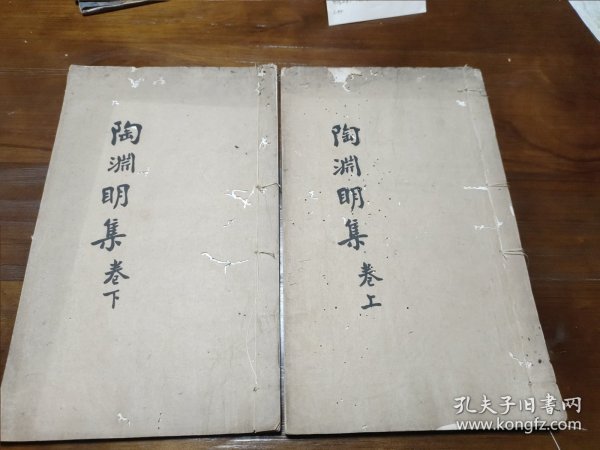 陶淵明集卷上
陶淵明集卷下
孔夫子旧書网
www.kongfz.com